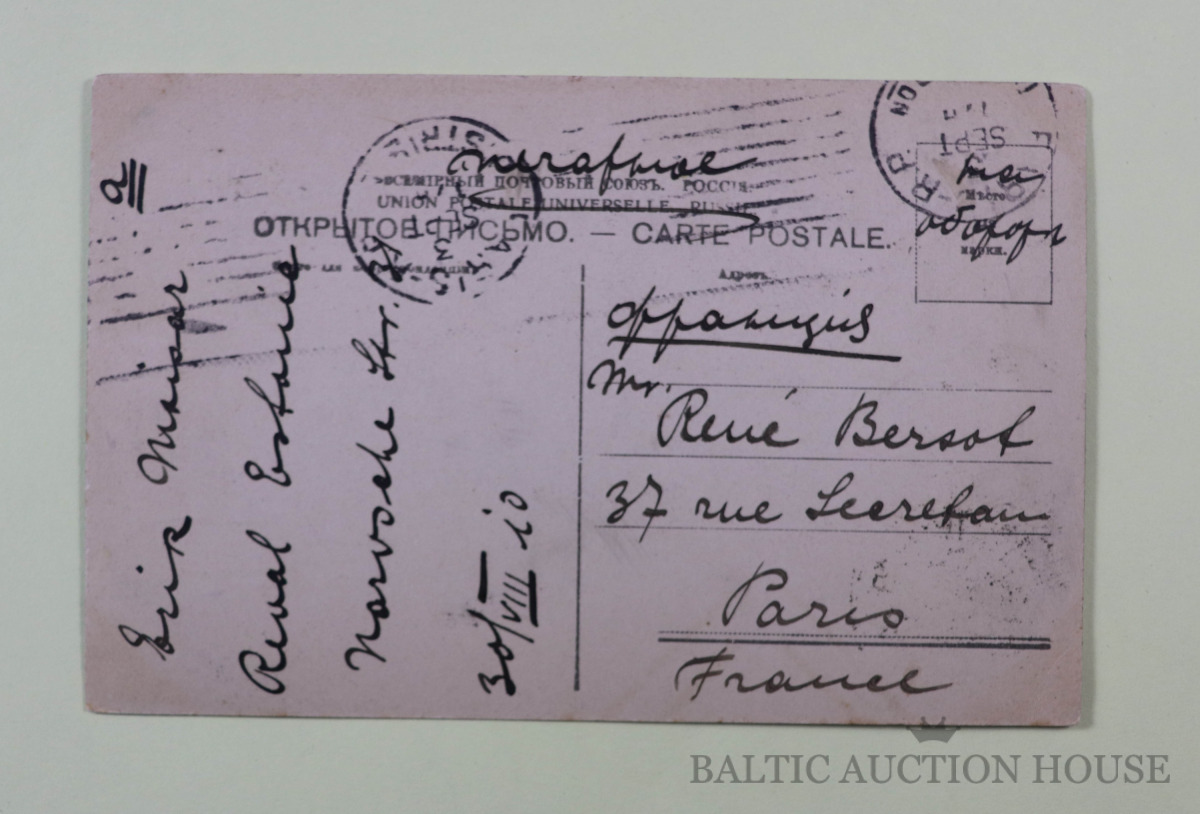 ВСЕМІРНЫЙ ПОЧТОВЫЙ СОЮЗЪ. РОССІЯ.
UNION POSTALE UNIVERSELLE. RUSSIE
ОТКРЫТОЕ ПИСЬМО. — CARTE POSTALE.
Адресъ.
Мѣсто
марки.
на
оборотѣ
SEPT
Франція
Mr.
René Bersot
37 rue Secretan
Paris
France
a
Erik
Reval Estonie
Str.
30/VIII 10
BALTIC AUCTION HOUSE